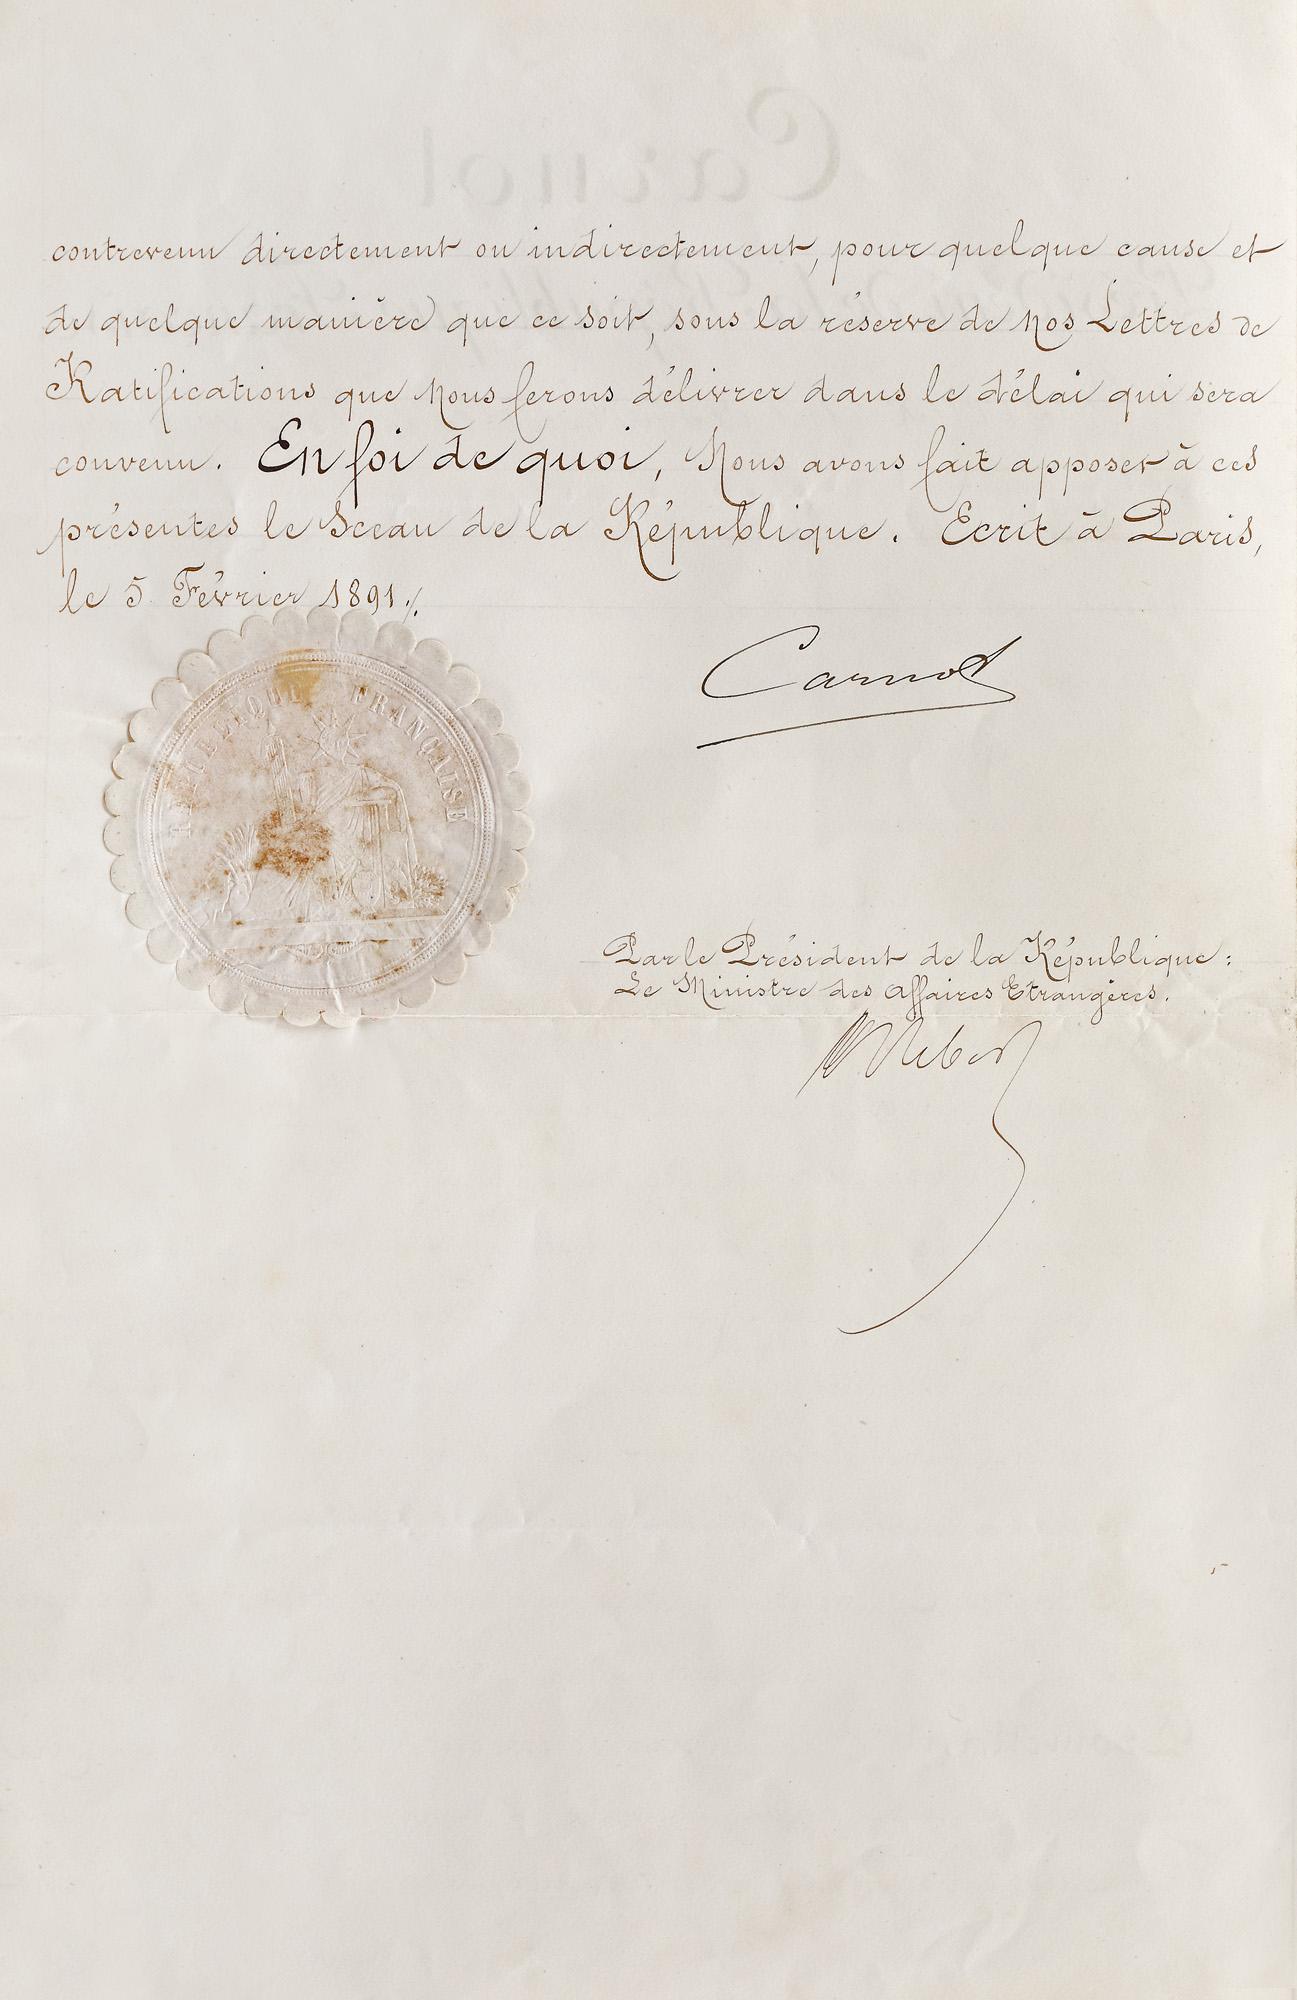 contrevenu directement ou indirectement, pour quelque cause et
de quelque manière que ce soit, sous la réserve de Nos Lettres de
Ratifications que Nous ferons délivrer dans le délai qui sera
convenu. En foi de quoi, Nous avons fait apposer à ces
présentes le Sceau de la République. Ecrit à Paris,
le 5 Février 1891 ./.
RÉPUBLIQUE FRANÇAISE
Carnot
Par le Président de la République:
Le Ministre des Affaires Etrangères.
Ribot